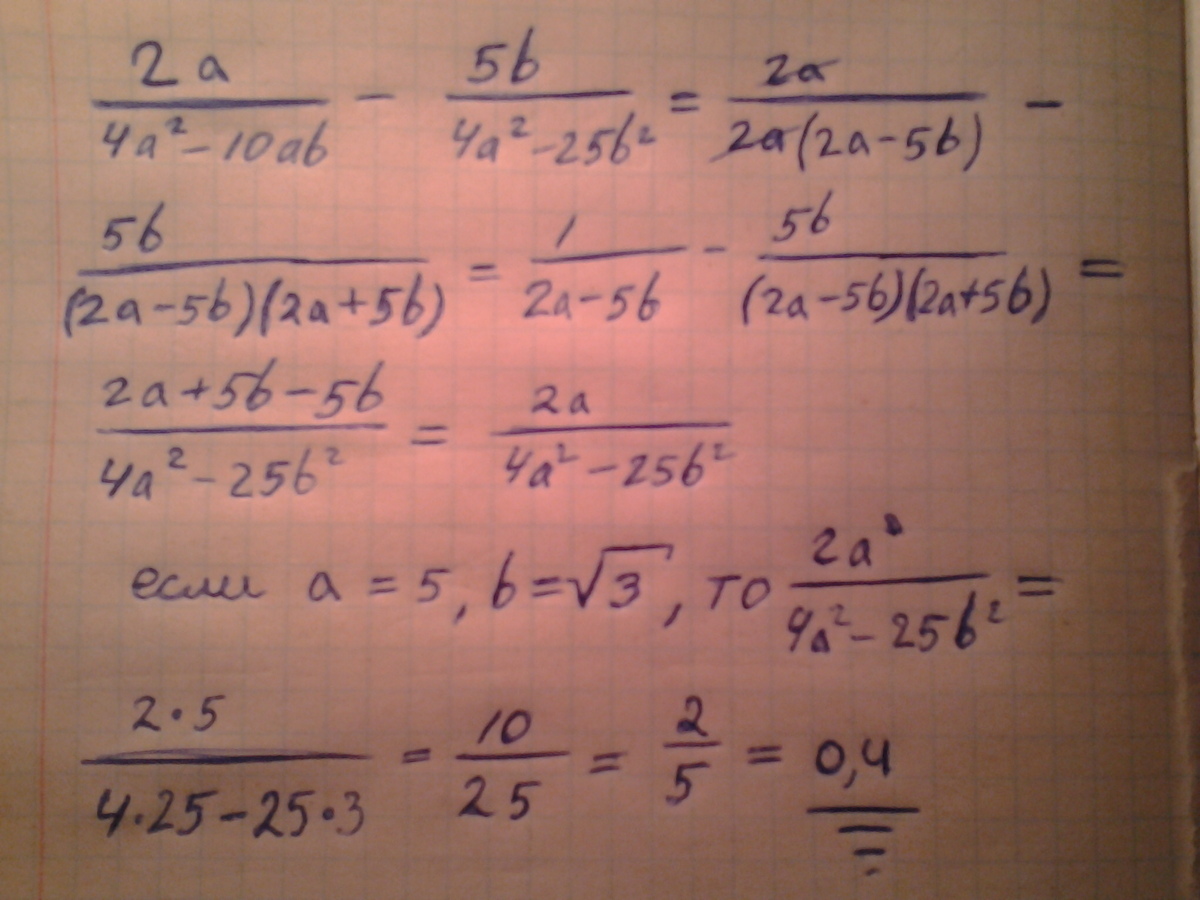 2a/(4a²-10ab) - 5b/(4a²-25b²) = 2a/(2a(2a-5b)) -
5b/((2a-5b)(2a+5b)) = 1/(2a-5b) - 5b/((2a-5b)(2a+5b)) =
(2a+5b-5b)/(4a²-25b²) = 2a/(4a²-25b²)
если a = 5, b = √3, то 2a/(4a²-25b²) =
2·5/(4·25-25·3) = 10/25 = 2/5 = 0,4